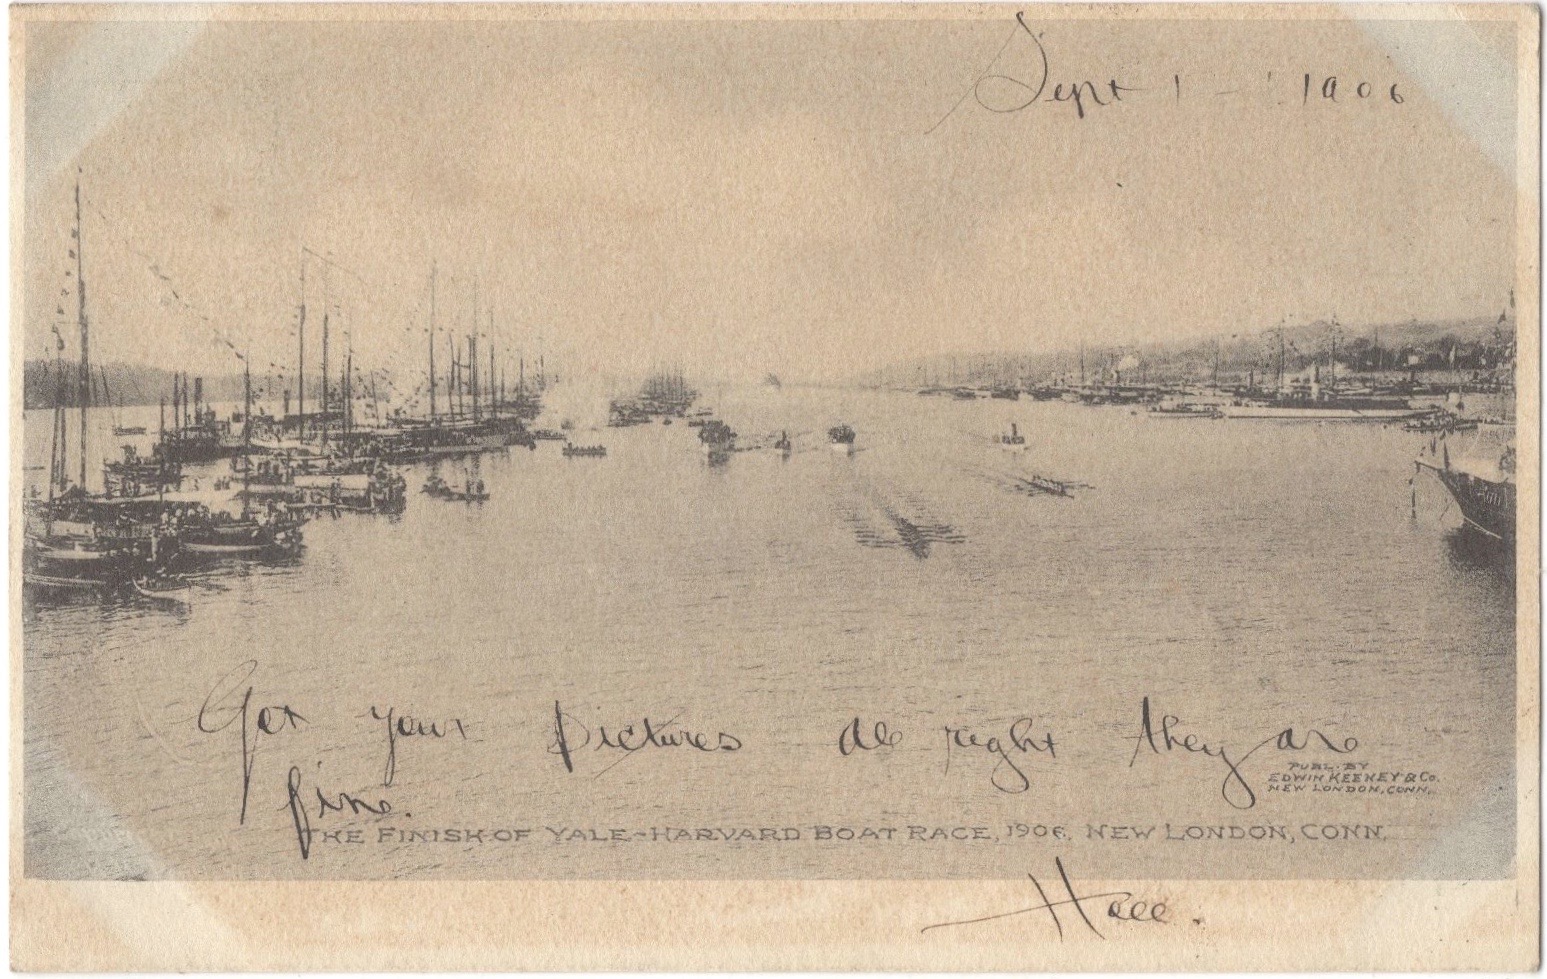 Sept 1 - 1906
Got your pictures all right they are
fine.
PUBL. BY
EDWIN KEENEY & CO.
NEW LONDON, CONN.
THE FINISH OF YALE-HARVARD BOAT RACE, 1906. NEW LONDON, CONN.
Hall.